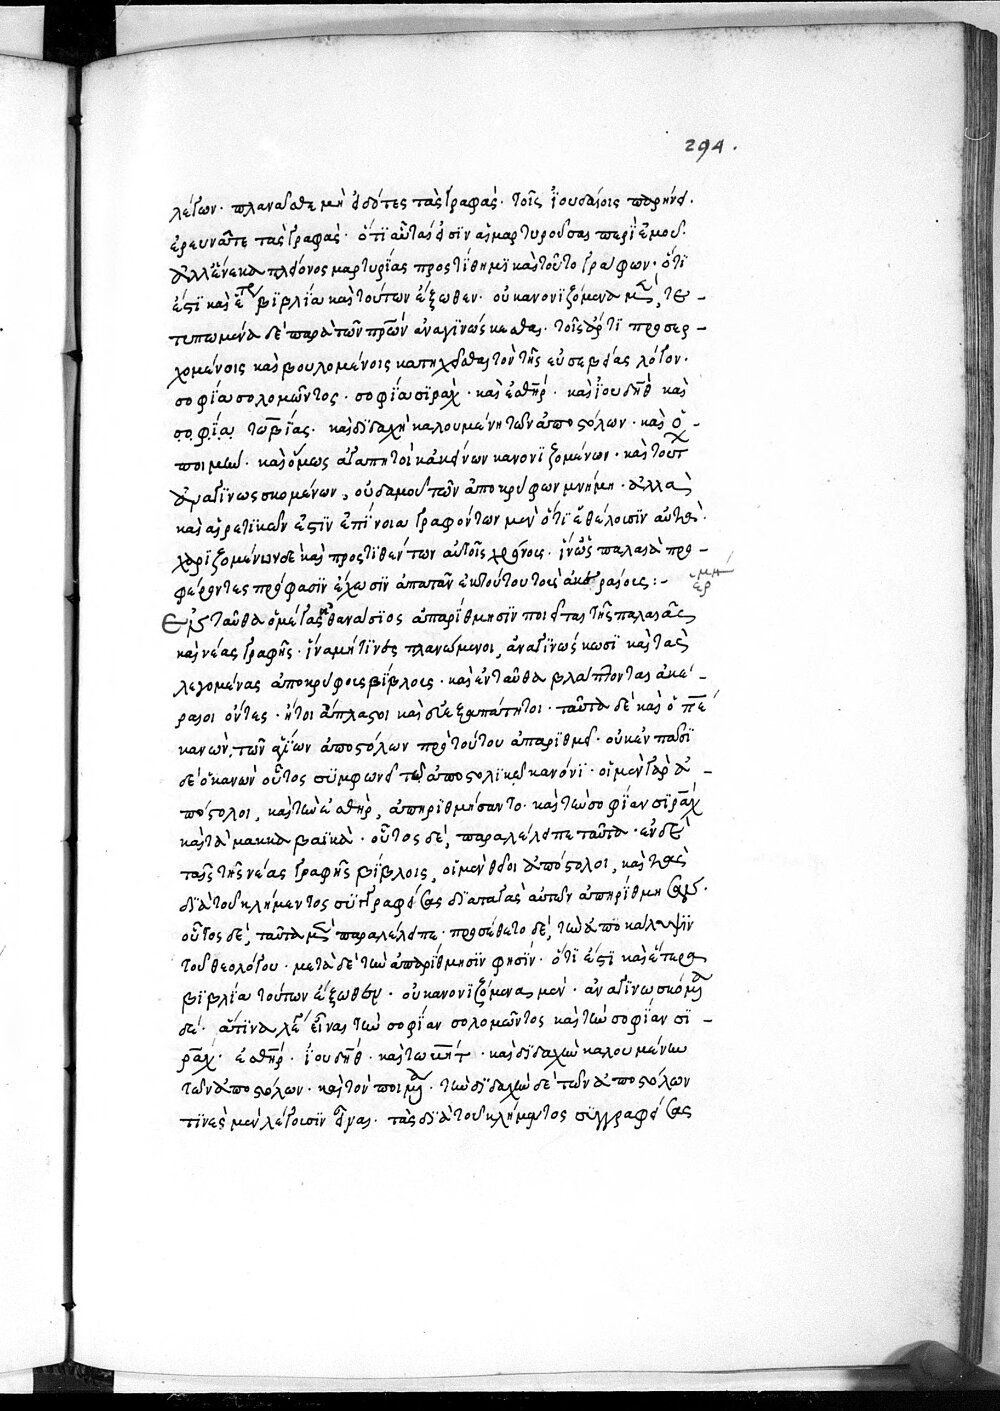 294.
λέγων· πλανᾶσθε μὴ εἰδότες τὰς γραφάς· τοῖς ἰουδαίοις παρήνει·
ἐρευνᾶτε τὰς γραφάς· ὅτι αὗται εἰσὶν αἱ μαρτυροῦσαι περὶ ἐμοῦ·
ἀλλ' ἕνεκα πλείονος μαρτυρίας προστίθημι καὶ τοῦτο γράφων· ὅτι
ἐστὶ καὶ ἕτερα βιβλία καὶ τούτων ἔξωθεν· οὐ κανονιζόμενα μὲν, τε-
τυπωμένα δὲ παρὰ τῶν πρων ἀναγινώσκεσθαι· τοῖς ἄρτι προσερ-
χομένοις καὶ βουλομένοις κατηχεῖσθαι τὸν τῆς εὐσεβείας λόγον·
σοφία σολομῶντος· σοφία σιραχ· καὶ ἐσθὴρ· καὶ ἰουδὴθ καὶ
σοφία τωβίας· καὶ διδαχὴ καλουμένη τῶν ἀποστόλων· καὶ ὁ
ποιμήν· καὶ ὅμως ἀγαπητοὶ κἀκείνων κανονιζομένων· καὶ τούτων
ἀναγινωσκομένων, οὐδαμοῦ τῶν ἀποκρύφων μνήμη· ἀλλὰ
καὶ αἱρετικῶν ἐστὶν ἐπίνοια γραφόντων μὲν ὅτι ἐθέλοισιν αὐτὰς·
χαριζομένων δὲ καὶ προστιθέντων αὐτοῖς χρόνοις· ἵν' ὡς παλαιὰ προ-
φέροντες πρόφασιν ἔχωσιν ἀπατᾶν ἐκ τούτου τοὺς ἀκεραίοις:-
ἑρμ
Ἐνταῦθα ὁ μέγας ἀθανάσιος ἀπαρίθμησιν ποιεῖται τῆς παλαιᾶς
καὶ νέας γραφῆς· ἵνα μή τινὲς πλανώμενοι, ἀναγινώσκωσι καὶ τὰς
λεγομένας ἀποκρύφοις βίβλοις· καὶ ἐντεῦθα βλάπτονται ἀκέ-
ραιοι ὄντες· ἤτοι ἄπλαστοι καὶ εὐεξαπάτητοι· ταῦτα δὲ καὶ ὁ πε
κανὼν, τῶν ἁγίων ἀποστόλων πρὸ τούτου ἀπαριθμεῖ· οὐκ ἐν πᾶσι
δὲ ὁ κανὼν οὗτος συμφωνεῖ τῶ ἀποστολικῶ κανόνι· οἱ μὲν γὰρ ἀ-
πόστολοι, καὶ τὴν ἐσθὴρ, ἀπηριθμήσαντο· καὶ τὴν σοφίαν σιρὰχ
καὶ τὰ μακκαβαϊκὰ· οὗτος δὲ, παραλέλοιπε ταῦτα· ἐν δὲ
ταῖς τῆς νέας γραφῆς βίβλοις, οἱ μὲν θεῖοι ἀπόστολοι, καὶ τὰς
διὰ τοῦ κλήμεντος συγγραφείσας διαταγὰς αὐτῶν ἀπηρίθμησαν·
οὗτος δὲ, ταῦτα μὲν παραλέλοιπε· προσέθετο δὲ, τὴν ἀποκάλυψιν
τοῦ θεολόγου· μετὰ δὲ τὴν ἀπαρίθμησιν φησὶν· ὅτι ἐστὶ καὶ ἕτερα
βιβλία τούτων ἔξωθεν· οὐ κανονιζόμενα μὲν· ἀναγινωσκόμενα
δέ· ἅτινα λέγει εἶναι τὴν σοφίαν σολομῶντος καὶ τὴν σοφίαν σι-
ράχ· ἐσθήρ· ἰουδήθ· καὶ τωβίτ· καὶ διδαχὴν καλουμένην
τῶν ἀποστόλων· καὶ τὸν ποιμένα· τὴν διδαχὴν δὲ τῶν ἀποστόλων
τινὲς μὲν λέγοισιν εἶναι· τὰς διὰ τοῦ κλήμεντος συγγραφείσας